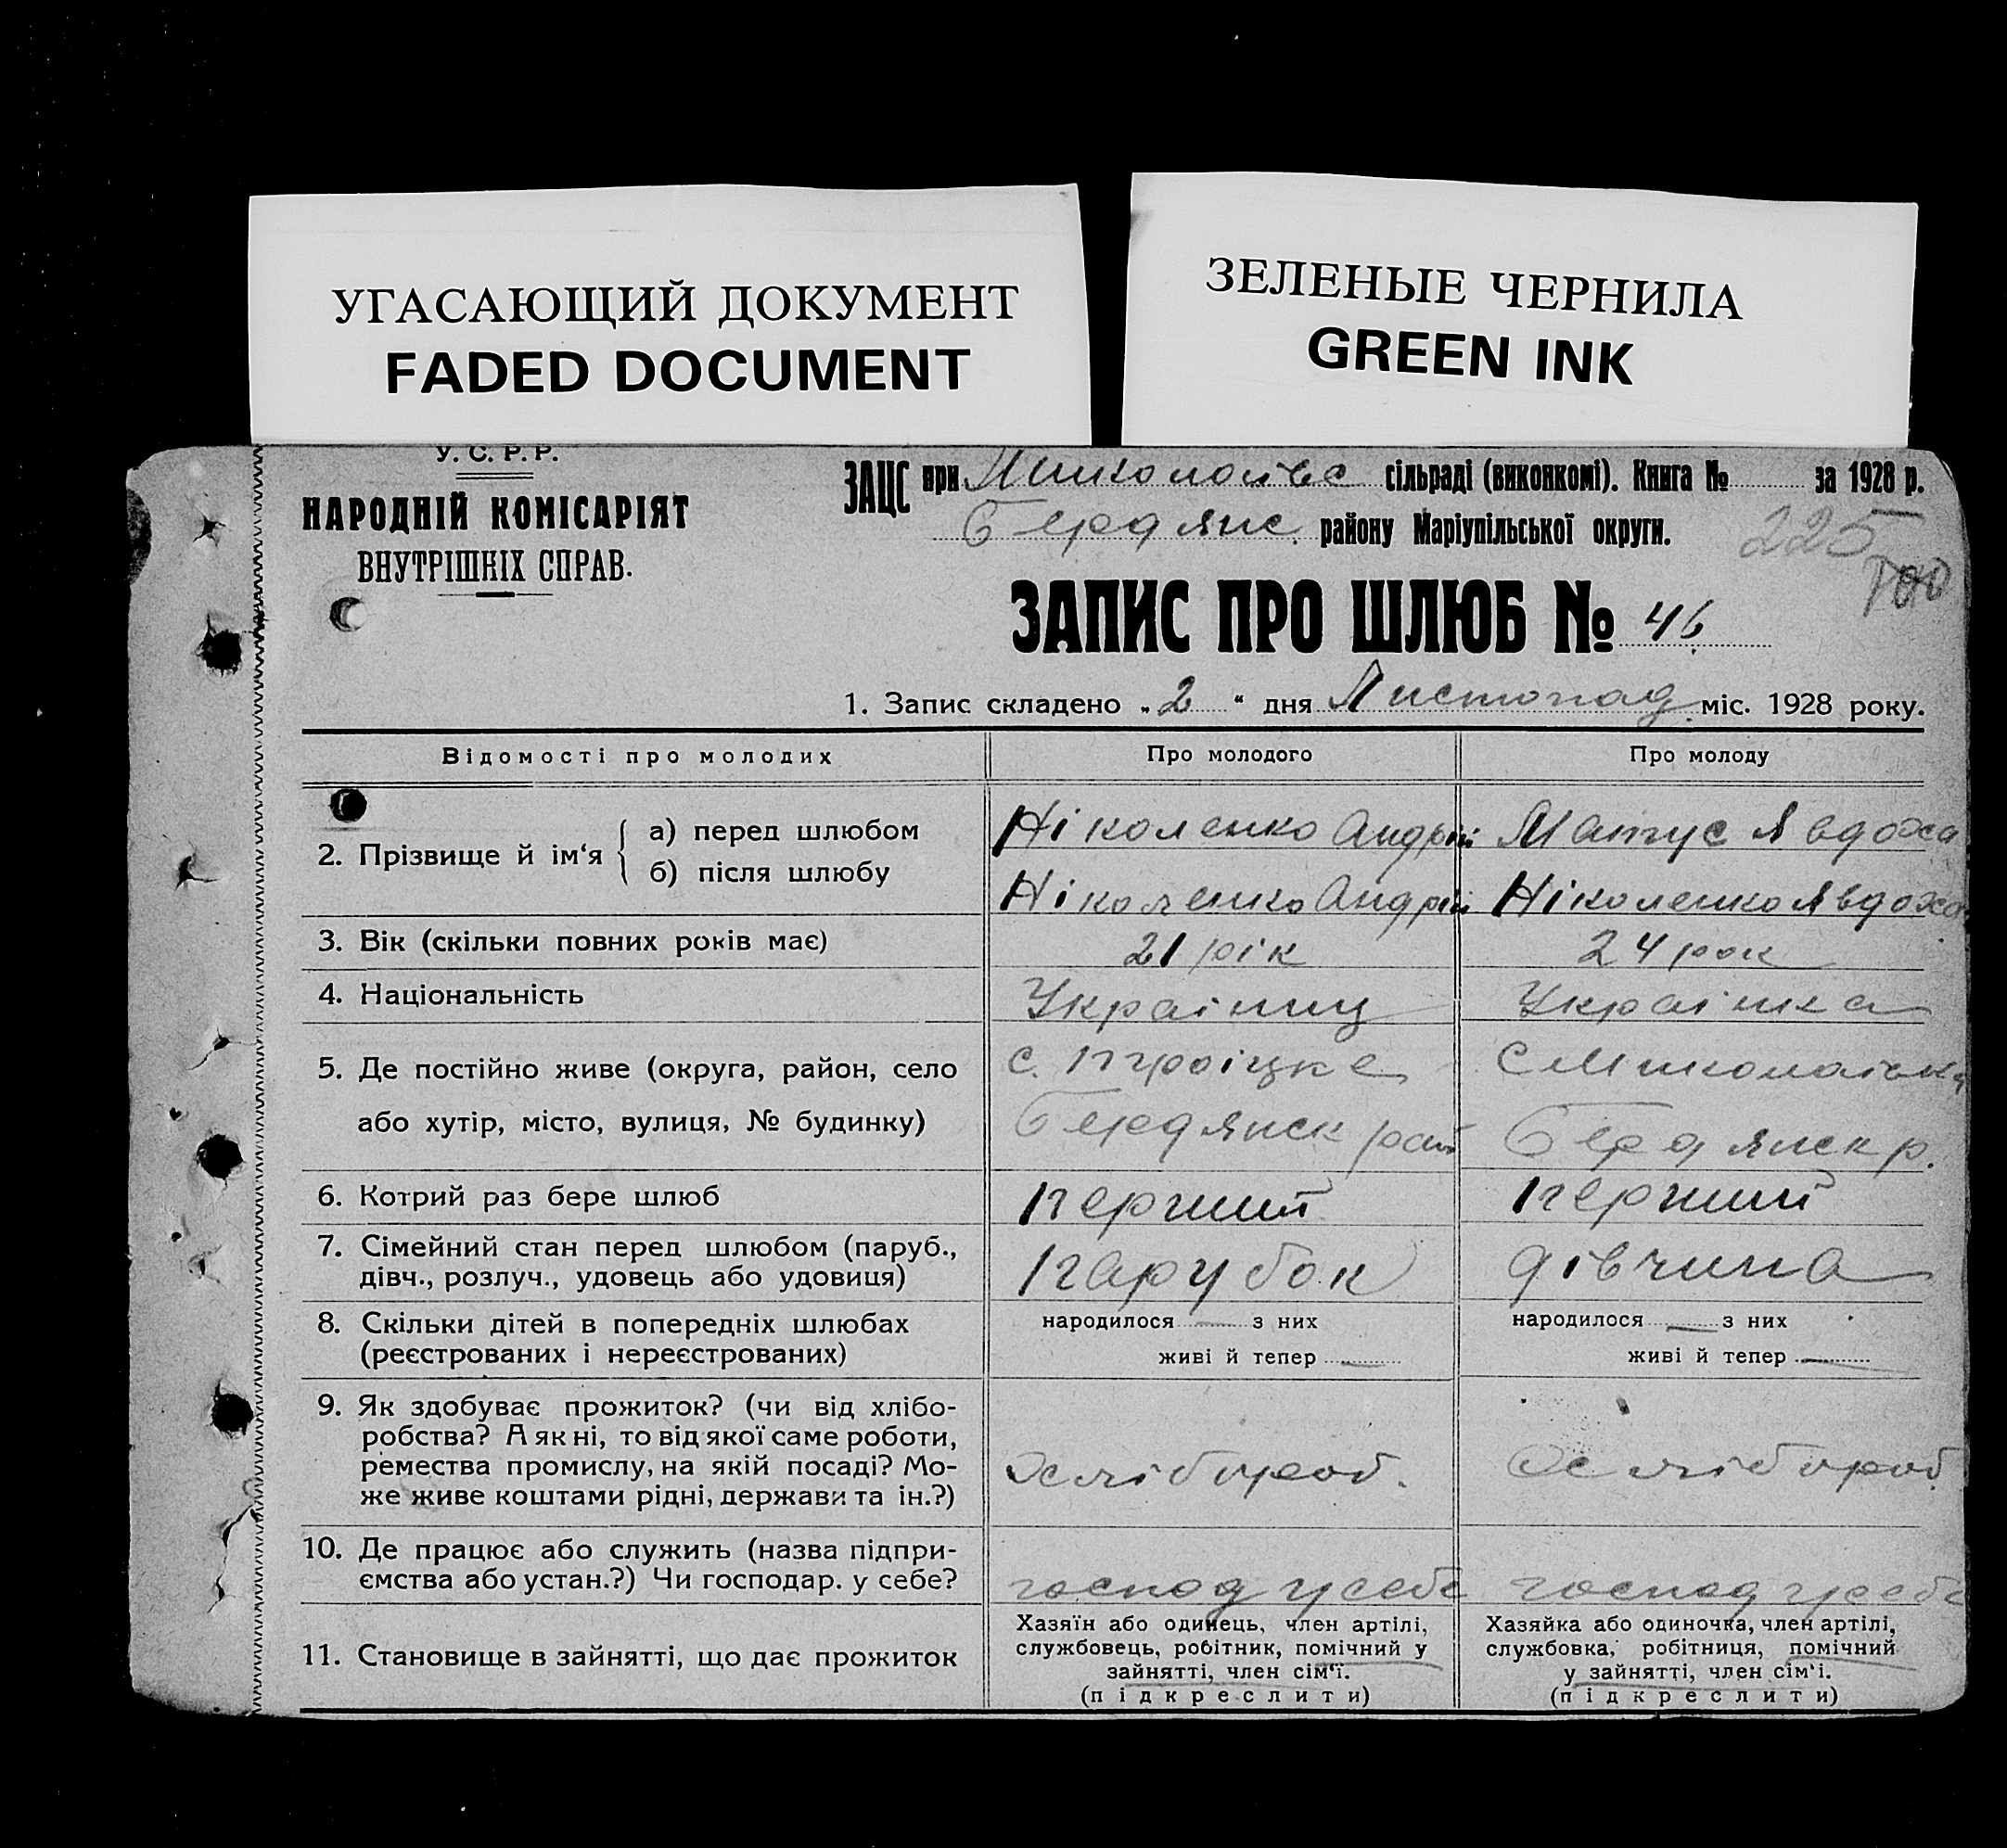 УГАСАЮЩИЙ ДОКУМЕНТ
FADED DOCUMENT
ЗЕЛЕНЫЕ ЧЕРНИЛА
GREEN INK
У. С. Р. Р.
НАРОДНІЙ КОМІСАРІЯТ
ВНУТРІШНІХ СПРАВ.
ЗАЦС при сільраді (виконкомі). Книга № за 1928 р.
Бердянс. району Маріупільської округи.
225
ЗАПИС ПРО ШЛЮБ № 46
1. Запис складено „2“ дня Листопад міс. 1928 року.
Відомості про молодих
Про молодого
Про молоду
2. Прізвище й ім‘я
а) перед шлюбом
Ніколенко Андрій
Матус Явдоха
б) після шлюбу
Ніколенко Андрій
Ніколенко Явдоха
3. Вік (скільки повних років має)
21 рік
24 рок
4. Національність
Українц
Українка
5. Де постійно живе (округа, район, село
або хутір, місто, вулиця, № будинку)
с. Троіцке
Бердянск рай
с
Бердянск р.
6. Котрий раз бере шлюб
перший
перший
7. Сімейний стан перед шлюбом (паруб.,
дівч., розлуч., удовець або удовиця)
парубок
дівчина
8. Скільки дітей в попередніх шлюбах
(реєстрованих і нереєстрованих)
народилося — з них
живі й тепер —
народилося — з них
живі й тепер —
9. Як здобуває прожиток? (чи від хлібо-
робства? А як ні, то від якої саме роботи,
ремества промислу, на якій посаді? Мо-
же живе коштами рідні, держави та ін.?)
хлібороб.
хлібороб.
10. Де працює або служить (назва підпри-
ємства або устан.?) Чи господар. у себе?
господ у себе
господ у себе
11. Становище в зайнятті, що дає прожиток
Хазяїн або одинець, член артілі,
службовець, робітник, помічний у
зайнятті, член сім‘ї.
(підкреслити)
Хазяйка або одиночка, член артілі,
службовка, робітниця, помічний
у зайнятті, член сім‘і.
(підкреслити)